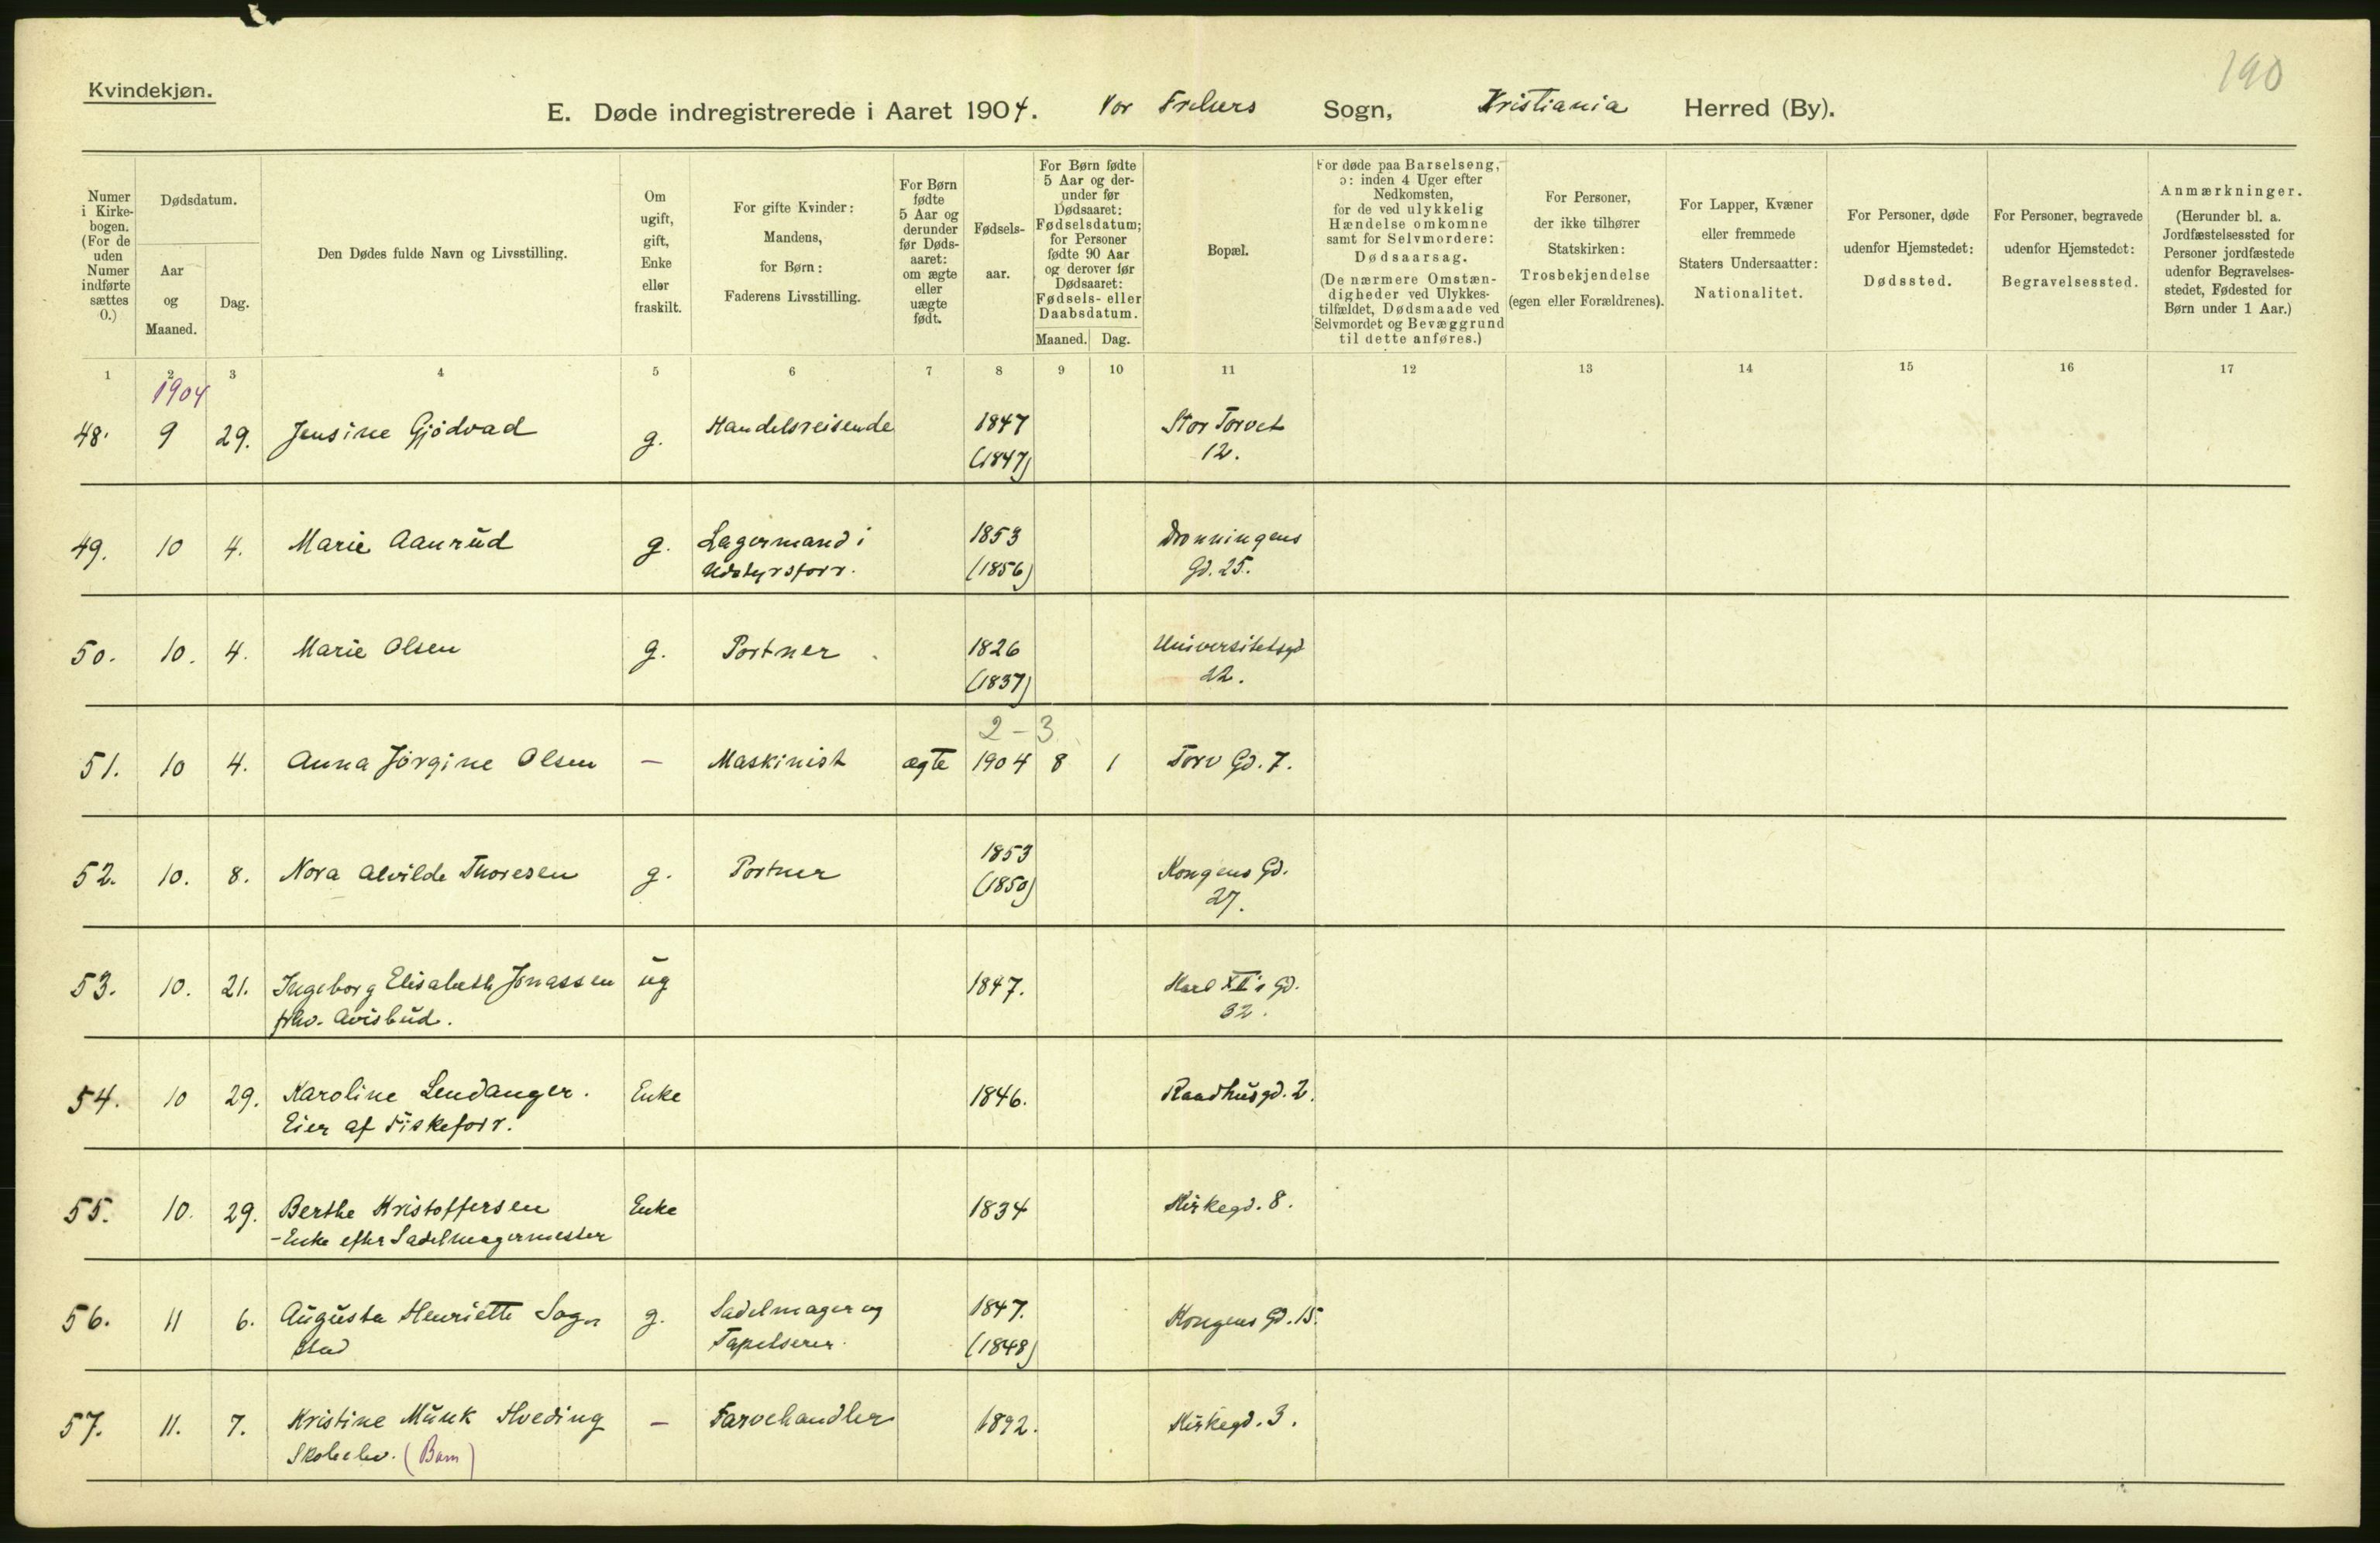 190
Kvindekjøn.
E. Døde indregistrerede i Aaret 1904. Vor Frelsers Sogn, Kristiania Herred (By).
Numer i Kirkebogen. (For de uden Numer indførte sættes 0.)
Dødsdatum.
Aar og Maaned.
Dag.
Den Dødes fulde Navn og Livsstilling.
Om ugift, gift, Enke eller fraskilt.
For gifte Kvinder: Mandens, for Børn: Faderens Livsstilling.
For Børn fødte 5 Aar og derunder før Dødsaaret: om ægte eller uægte født.
Fødselsaar.
For Børn fødte 5 Aar og derunder før Dødsaaret: Fødselsdatum; for Personer fødte 90 Aar og derover før Dødsaaret: Fødsels- eller Daabsdatum.
Maaned. Dag.
Bopæl.
For døde paa Barselseng, ɔ: inden 4 Uger efter Nedkomsten, for de ved ulykkelig Hændelse omkomne samt for Selvmordere: Dødsaarsag. (De nærmere Omstændigheder ved Ulykkestilfældet, Dødsmaade ved Selvmordet og Bevæggrund til dette anføres.)
For Personer, der ikke tilhører Statskirken: Trosbekjendelse (egen eller Forældrenes).
For Lapper, Kvæner eller fremmede Staters Undersaatter: Nationalitet.
For Personer, døde udenfor Hjemstedet: Dødssted.
For Personer, begravede udenfor Hjemstedet: Begravelsessted.
Anmærkninger. (Herunder bl. a. Jordfæstelsessted for Personer jordfæstede udenfor Begravelsesstedet, Fødested for Børn under 1 Aar.)
1 2 3 4 5 6 7 8 9 10 11 12 13 14 15 16 17
1904
48. 9 29. Jensine Gjödvad g. Handelsreisende 1847 Stor Torvet
(1847) 12.
49. 10 4. Marie Aanrud g. Lagermand i 1853 Dronningens
Udstyrsforr. (1856) Gd. 25.
50. 10. 4. Marie Olsen g. Portner. 1826 Universitetsgd
(1837) 22.
2-3
51. 10 4. Anna Jörgine Olsen — Maskinist ægte 1904 8 1 Torv Gd. 7.
52. 10. 8. Nora Alvilde Thoresen g. Portner 1853 Kongens Gd.
(1850) 27.
53. 10. 21. Ingeborg Elisabeth Jonassen ug 1847. Karl XII's Gd.
fhv. Avisbud. 32.
54. 10 29. Karoline Lendanger. Enke 1846. Raadhusgd. 2.
Eier af Fiskeforr.
55. 10. 29. Berthe Kristoffersen Enke 1834 Kirkegd. 8.
- Enke efter Sadelmagermester
56. 11 6. Augusta Henriette Sogn g. Sadelmager og 1847. Kongens Gd. 15.
stad Tapetserer. (1848)
57. 11. 7. Kristine Munk Hveding — Farvehandler 1892. Kirkegd. 3.
Skoleelev. (Barn)